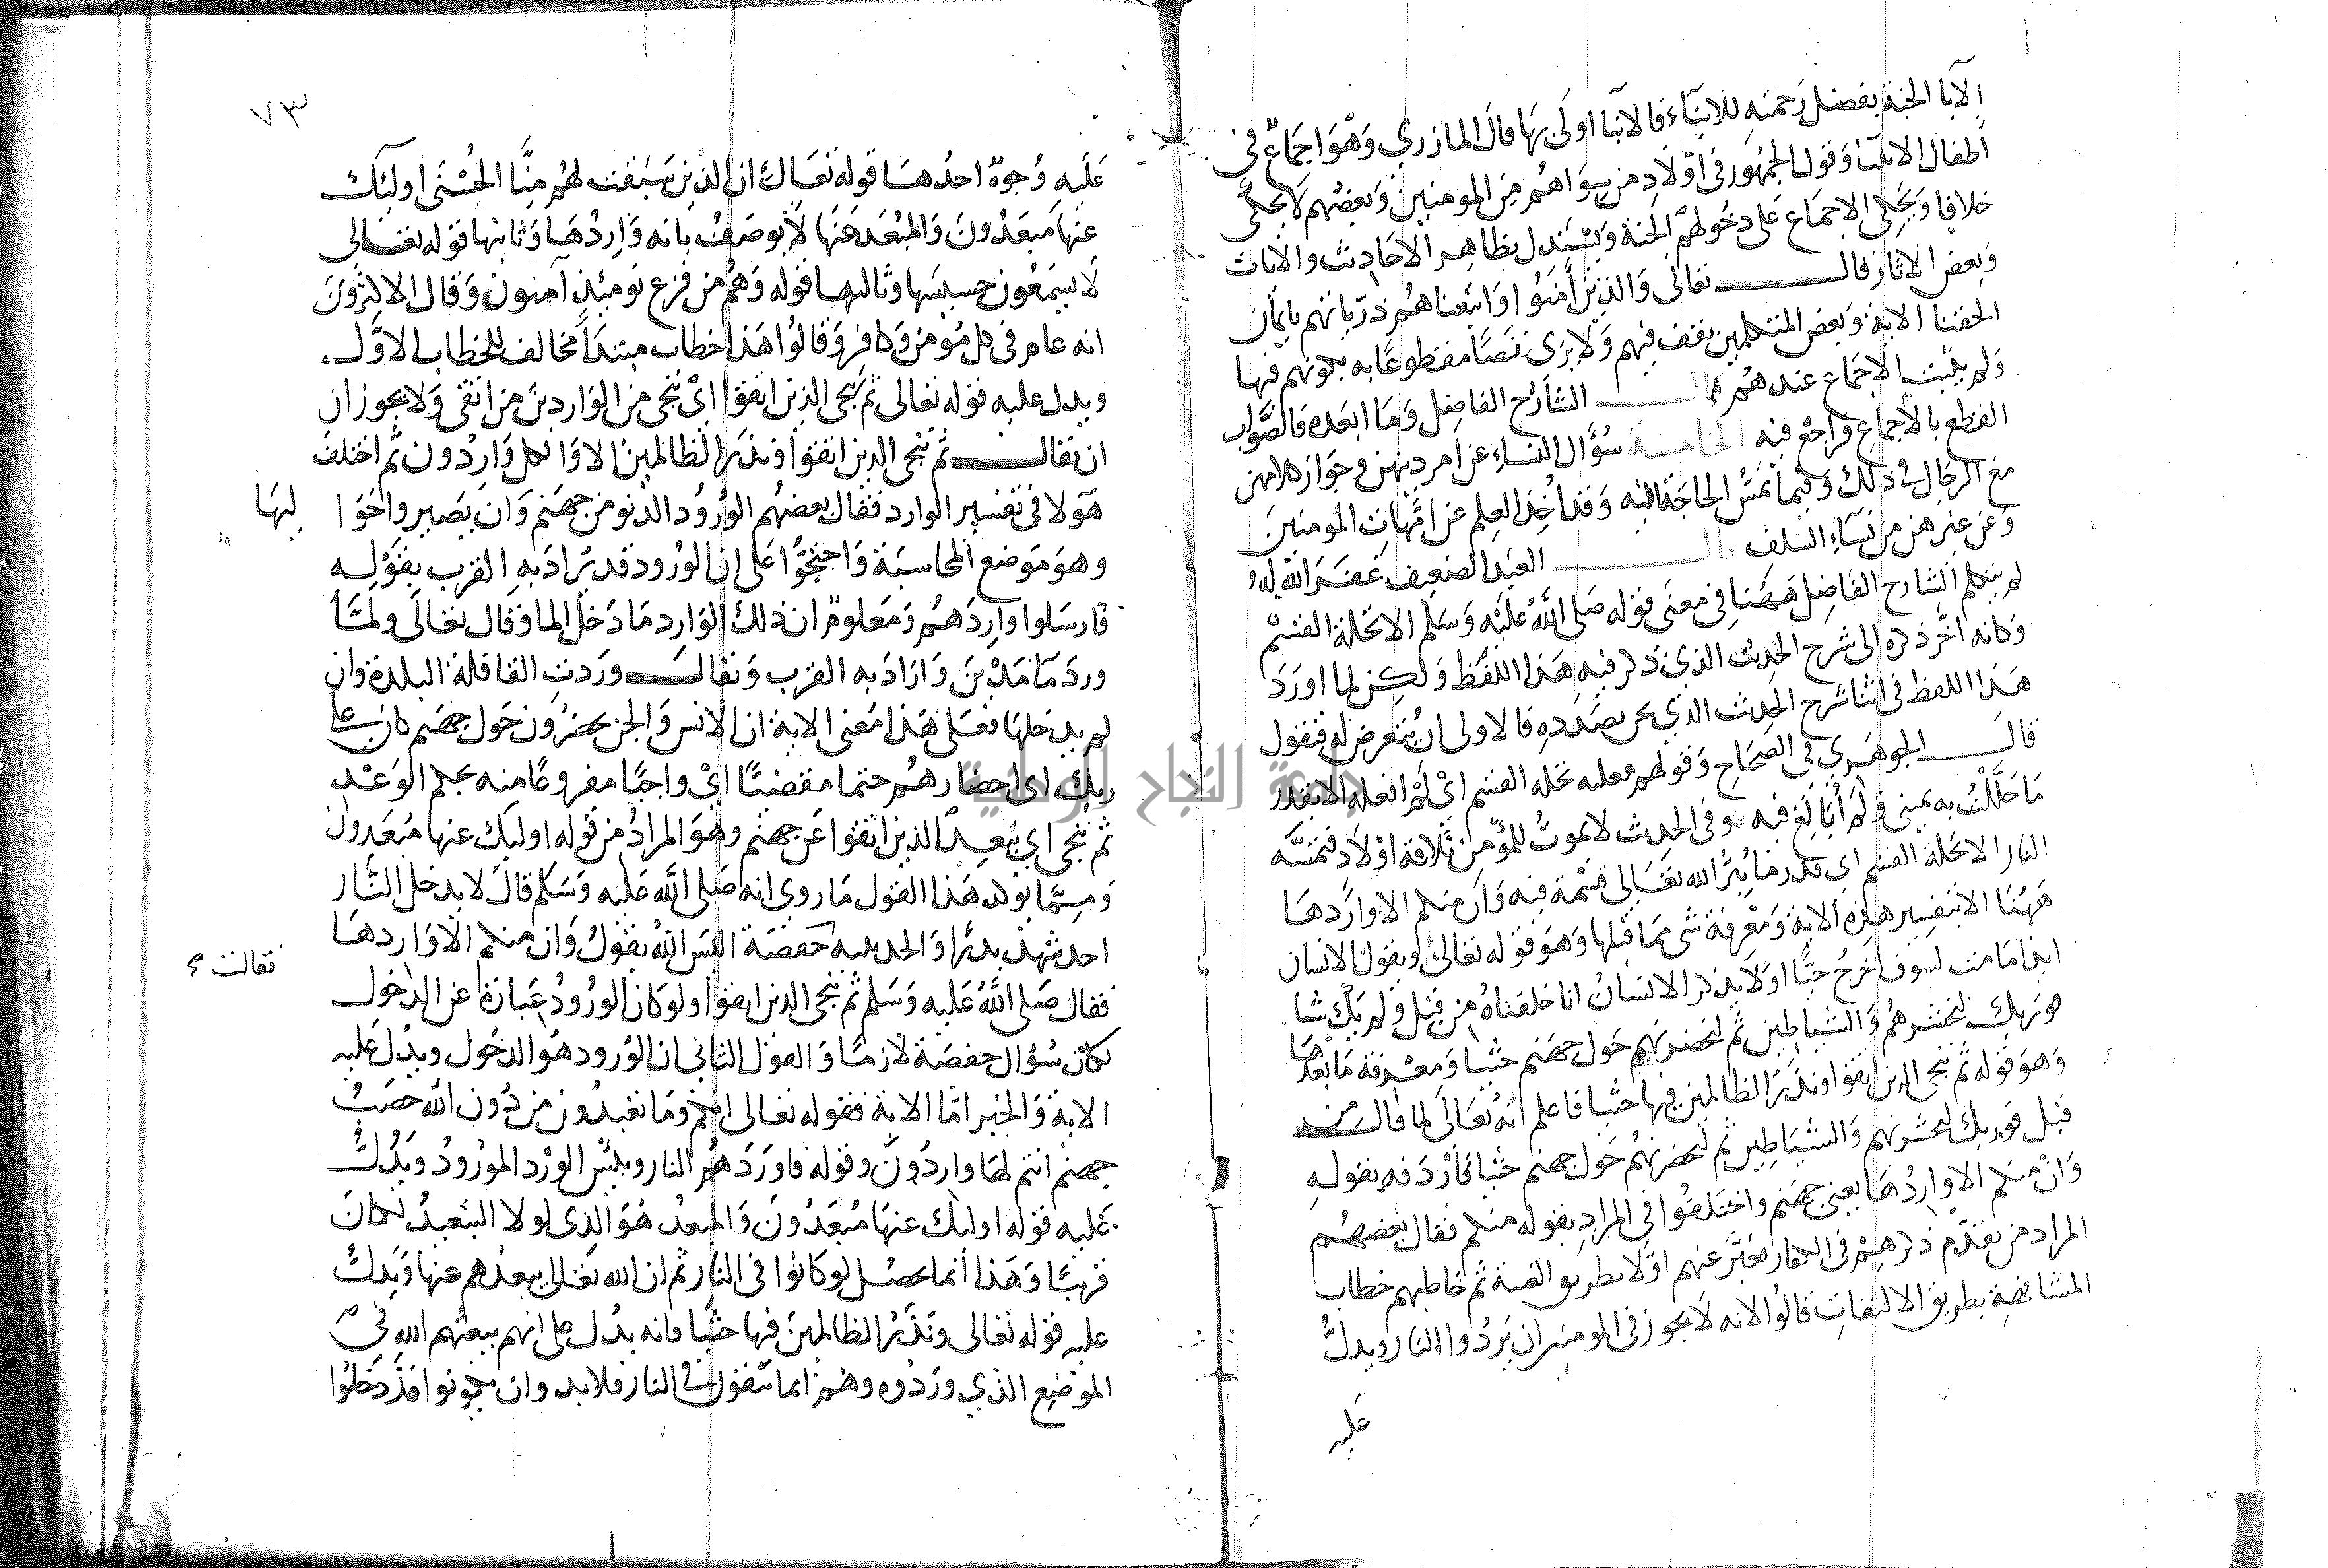 الآبا الجنة بفضل رحمته للابناء فالابنا اولى بها قال المازري وهو اجماع في
اطفال الانبيا وقول الجمهور في اولاد من سواهم من المومنين وبعضهم لا يحكى
خلافا ويحكى الاجماع على دخولهم الجنة ويستدل بظاهر الاحاديث والايات
وبعض الاثار قال تعالى والذين امنوا واتبعناهم ذرياتهم بايمان
الحقنا الاية وبعض المتكلمين يقف فيهم ولا يرى نصا مقطوعا به بكونهم فيها
ولم يثبت الاجماع عندهم قال الشارح الفاضل وما ابعده فالصواب
القطع بالاجماع فراجع فيه الخامسة سؤال النساء عن امر دينهن وجواز كلامهن
مع الرجال في ذلك وفيما تمس الحاجة اليه وقد اخذ العلم عن امهات المومنين
وعن غيرهن من نساء السلف قال العبد الضعيف غفر الله له
لم يتكلم الشارح الفاضل ههنا في معنى قوله صلى الله عليه وسلم الا تحلة القسم
وكانه اخر ذكره الى شرح الحديث الذي ذكر فيه هذا اللفظ ولكن لما اورد
هذا اللفظ في اثنا شرح الحديث الذي نحن بصدده فالاولى ان نتعرض له فنقول
قال الجوهري في الصحاح وقولهم فعلته تحلة القسم اي لم افعله الا بقدر
ما حللت به يميني ولم ابالغ فيه وفي الحديث لا يموت للمؤمن ثلاثة اولاد فتمسه
النار الا تحلة القسم اي قدر ما يبر الله تعالى قسمه فيه وان منكم الا واردها
ههنا الا بتفسير هذه الاية ومعرفة شى مما قبلها وهو قوله تعالى ويقول الانسان
ايذا ما مت لسوف اخرج حيا اولا يذكر الانسان انا خلقناه من قبل ولم يك شيا
فوربك لنحشرنهم والشياطين ثم لنحضرنهم حول جهنم جثيا ومعرفة ما بعدها
وهو قوله ثم ننجي الذين اتقوا ونذر الظالمين فيها جثيا فاعلم انه تعالى لما قال من
قبل فوربك لنحشرنهم والشياطين ثم لنحضرنهم حول جهنم جثيا فاردفه بقوله
وان منكم الا واردها يعني جهنم واختلفوا في المراد بقوله منكم فقال بعضهم
المراد من تقدم ذكرهم في الكفار فعبر عنهم اولا بطريق الغيبة ثم خاطبهم خطاب
المشافهة بطريق الالتفات قالوا لانه لا يجوز في المومنين ان يردوا النار ويدل
عليه
٧٣
عليه وجوه احدها قوله تعالى ان الذين سبقت لهم منا الحسنى اوليك
عنها مبعدون والمبعد عنها لا يوصف بانه واردها وثانيها قوله تعالى
لا يسمعون حسيسها وثالثها قوله وهم من فزع يومئذ آمنون وقال الاكثرون
انه عام في كل مومن وكافر وقالوا هذا خطاب مبتدأ مخالف للخطاب الاول
ويدل عليه قوله تعالى ثم ننجي الذين اتقوا اي ننجي من الواردين من اتقى ولا يجوز ان
ان يقال ثم ننجي الذين اتقوا ونذر الظالمين الا والكل واردون ثم اختلف
هولا في تفسير الوارد فقال بعضهم الورود الدنو من جهنم وان يصيروا حوا
ليها
وهو موضع المحاسبة واحتجوا على ان الورود قد يراد به القرب بقوله
فارسلوا واردهم ومعلوم ان ذلك الوارد ما دخل الما وقال تعالى ولما
ورد ما مدين واراد به القرب ويقال وردت القافلة البلدة وان
لم يدخلها فعلى هذا معنى الاية ان الانس والجن يحضرون حول جهنم كان على
ربك اي احضارهم حتما مقضيا اي واجبا مفروغا منه بحكم الوعد
ثم ننجي اي نبعد الذين اتقوا عن جهنم وهو المراد من قوله اوليك عنها مبعدون
ومما يوكد هذا القول ما روي انه صلى الله عليه وسلم قال لا يدخل النار
احد شهد بدرا والحديبية حفصة اليس الله يقول وان منكم الا واردها
فقالت
فقال صلى الله عليه وسلم ثم ننجي الذين اتقوا ولو كان الورود عبارة عن الدخول
لكان سؤال حفصة لازما والقول الثاني ان الورود هو الدخول ويدل عليه
الاية والخبر اما الاية فقوله تعالى انكم وما تعبدون من دون الله حصب
جهنم انتم لها واردون وقوله فاوردهم النار وبئس الورد المورود ويدل
عليه قوله اوليك عنها مبعدون والمبعد هو الذي لولا التبعيد لكان
قريبا وهذا انما يحصل لو كانوا في النار ثم ان الله تعالى يبعدهم عنها ويدل
عليه قوله تعالى ونذر الظالمين فيها جثيا فانه يدل على انهم يبعثهم الله في
الموضع الذي وردوه وهم انما يبقون في النار فلا بد وان يكونوا قد دخلوا